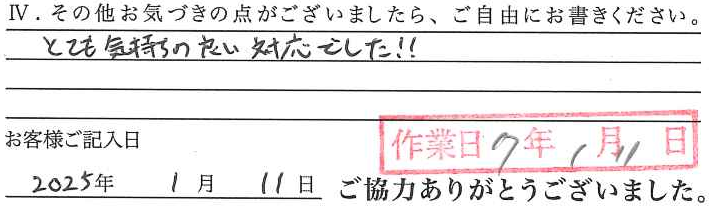 Ⅳ．その他お気づきの点がございましたら、ご自由にお書きください。
とても気持ちの良い対応でした!!
お客様ご記入日
作業日 7年 1月 11日
2025年 1月 11日
ご協力ありがとうございました。